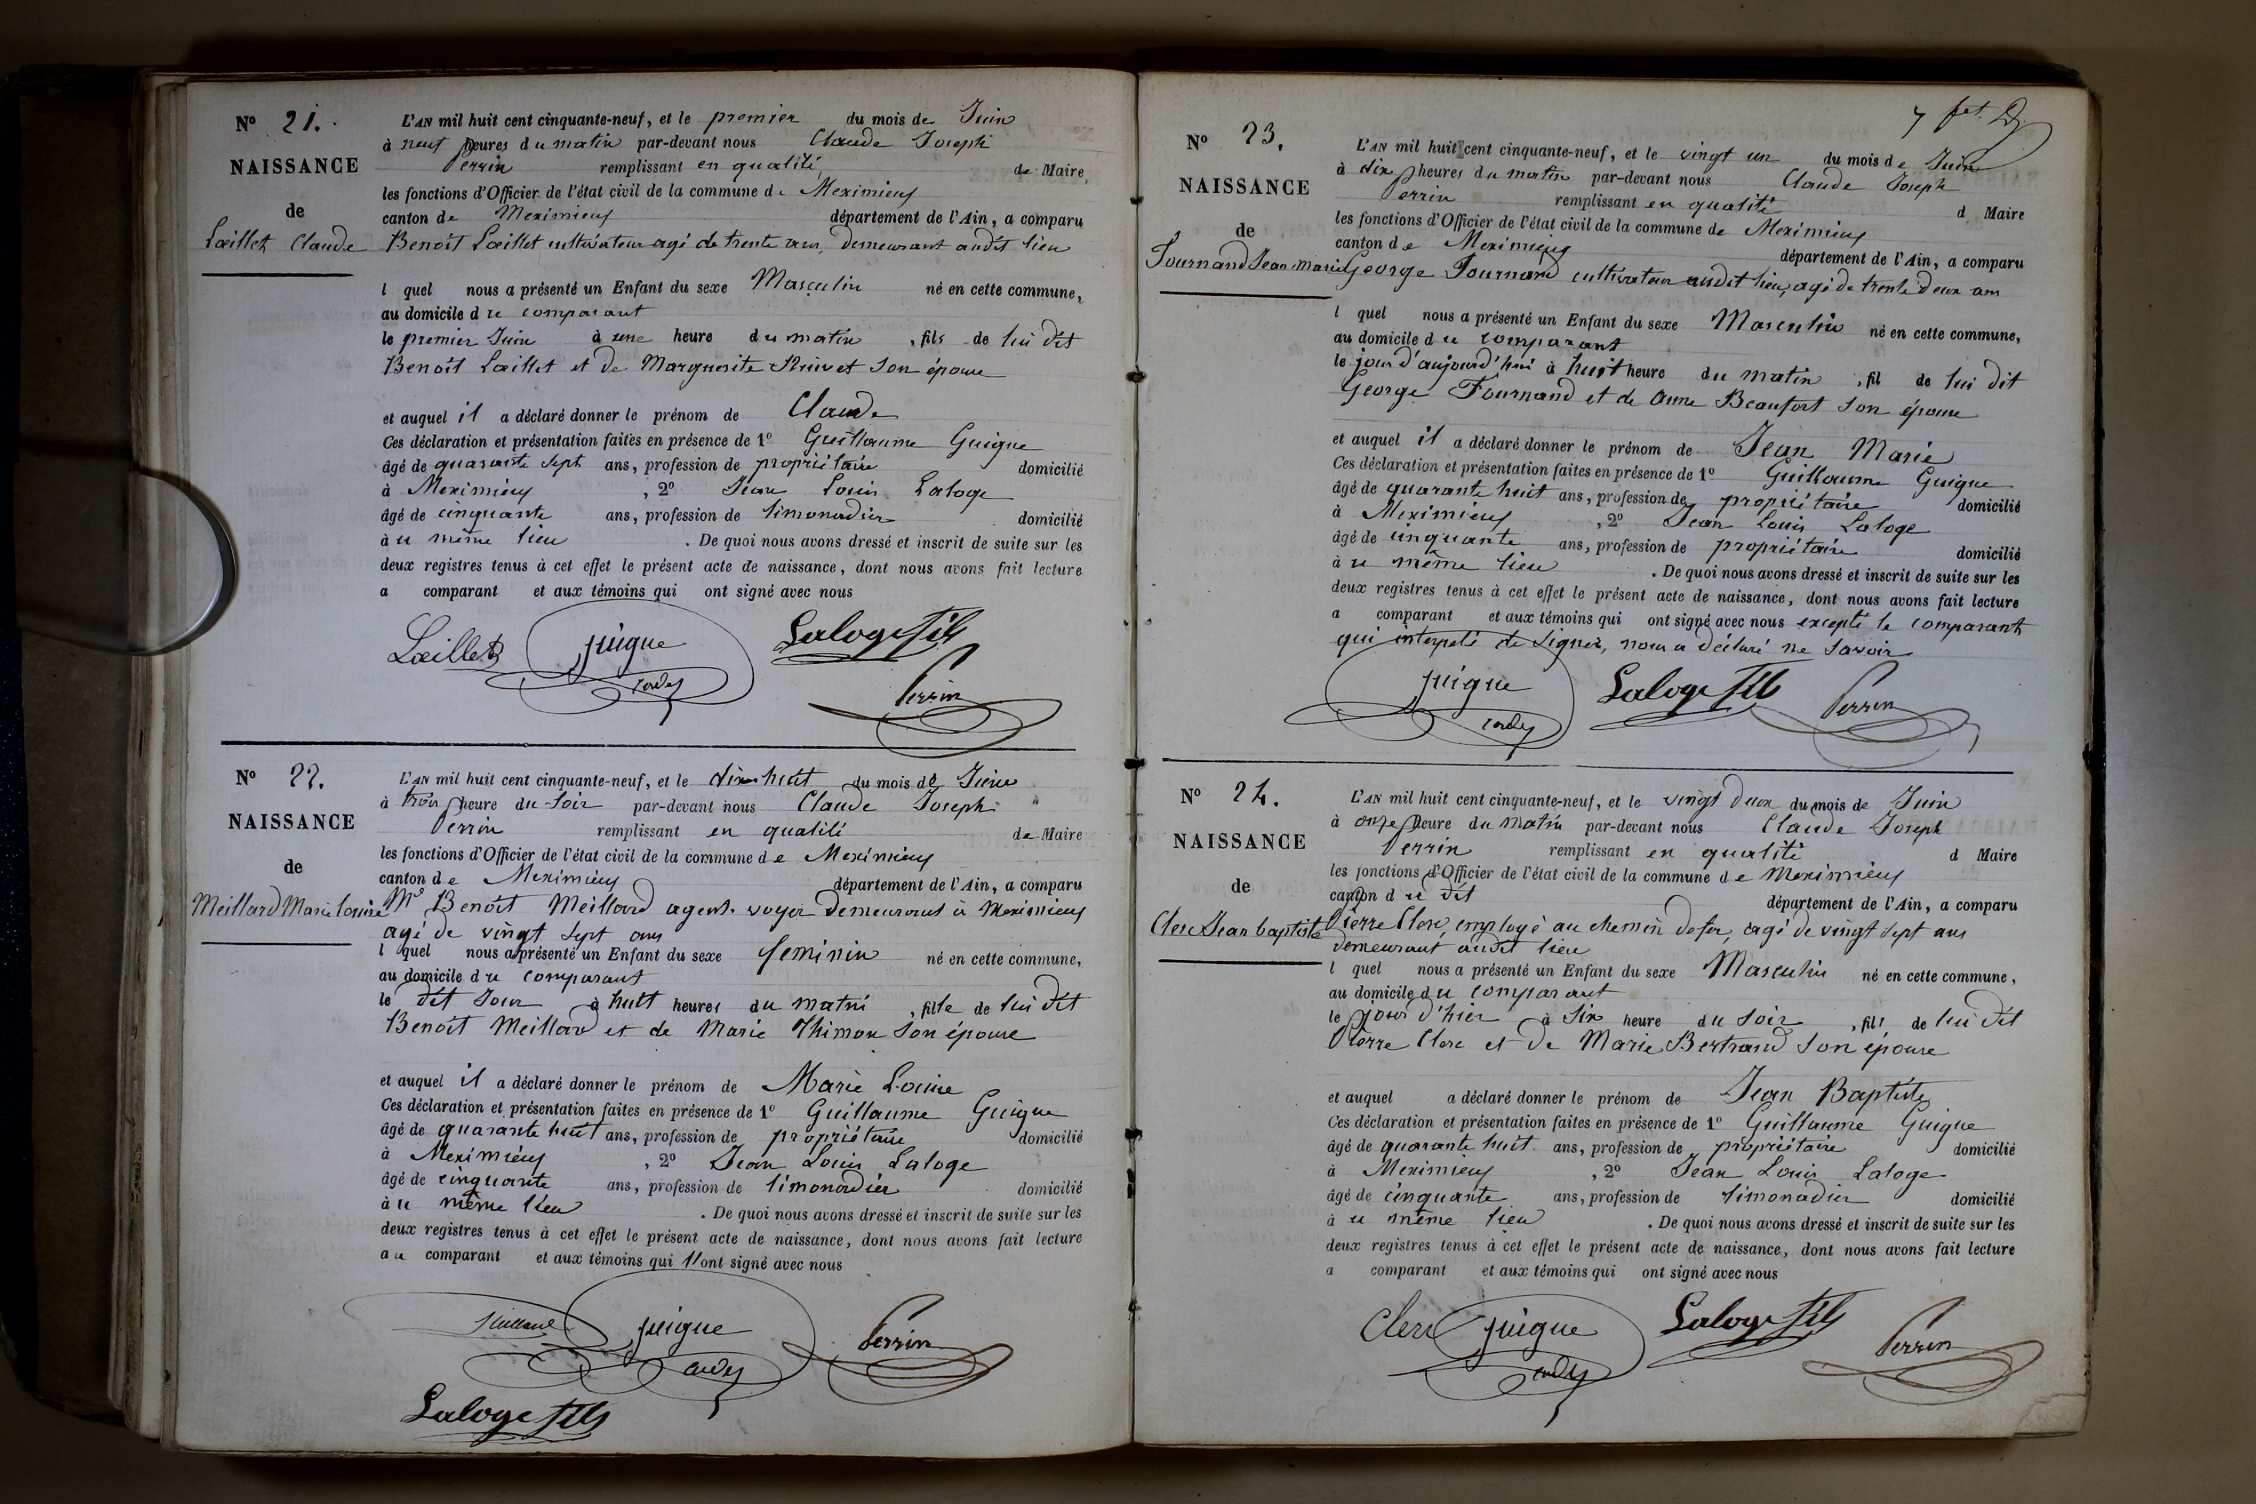 N° 21.
NAISSANCE
de
Lœillet Claude
L'AN mil huit cent cinquante-neuf, et le premier du mois de Juin
à neuf heures du matin par-devant nous Claude Joseph
Perrin remplissant en qualité de Maire,
les fonctions d'Officier de l'état civil de la commune de Meximieux
canton de Meximieux département de l'Ain, a comparu
Benoît Lœillet cultivateur agé de trente ans, demeurant audit lieu
l quel nous a présenté un Enfant du sexe Masculin né en cette commune,
au domicile du comparant
le premier Juin à une heure du matin, fils de lui dit
Benoît Lœillet et de Marguerite son épouse
et auquel il a déclaré donner le prénom de Claude
Ces déclaration et présentation faites en présence de 1° Guillaume Guigue
âgé de quarante sept ans, profession de propriétaire domicilié
à Meximieux, 2° Jean Louis Laloge
âgé de cinquante ans, profession de limonadier domicilié
à u même lieu. De quoi nous avons dressé et inscrit de suite sur les
deux registres tenus à cet effet le présent acte de naissance, dont nous avons fait lecture
a comparant et aux témoins qui ont signé avec nous
Lœillet guigue Laloge fils
Perrin
N° 22.
NAISSANCE
de
Meillard Marie Louise
L'AN mil huit cent cinquante-neuf, et le dix huit du mois de Juin
à trois heure du soir par-devant nous Claude Joseph
Perrin remplissant en qualité de Maire
les fonctions d'Officier de l'état civil de la commune de Meximieux
canton de Meximieux département de l'Ain, a comparu
Mr Benoît Meillard agent-voyer demeurant à Meximieux
agé de vingt sept ans
l quel nous a présenté un Enfant du sexe féminin né en cette commune,
au domicile du comparant
le dit Jour à huit heures du matin, fille de lui dit
Benoît Meillard et de Marie Thimon son épouse
et auquel il a déclaré donner le prénom de Marie Louise
Ces déclaration et présentation faites en présence de 1° Guillaume Guigue
âgé de quarante huit ans, profession de propriétaire domicilié
à Meximieux, 2° Jean Louis Laloge
âgé de cinquante ans, profession de limonadier domicilié
à u même lieu. De quoi nous avons dressé et inscrit de suite sur les
deux registres tenus à cet effet le présent acte de naissance, dont nous avons fait lecture
au comparant et aux témoins qui l'ont signé avec nous
Meillard guigue Perrin
Laloge fils
7
N° 23.
NAISSANCE
de
Fournand Jean Marie
L'AN mil huit cent cinquante-neuf, et le vingt un du mois de Juin
à dix heures du matin par-devant nous Claude Joseph
Perrin remplissant en qualité d Maire
les fonctions d'Officier de l'état civil de la commune de Meximieux
canton de Meximieux département de l'Ain, a comparu
George Fournand cultivateur audit lieu, agé de trente deux ans
l quel nous a présenté un Enfant du sexe Masculin né en cette commune,
au domicile du comparant
le jour d'aujourd'hui à huit heure du matin, fil de lui dit
George Fournand et de Anne Beaufort son épouse
et auquel il a déclaré donner le prénom de Jean Marie
Ces déclaration et présentation faites en présence de 1° Guillaume Guigue
âgé de quarante huit ans, profession de propriétaire domicilié
à Meximieux, 2° Jean Louis Laloge
âgé de cinquante ans, profession de propriétaire domicilié
à u même lieu. De quoi nous avons dressé et inscrit de suite sur les
deux registres tenus à cet effet le présent acte de naissance, dont nous avons fait lecture
a comparant et aux témoins qui ont signé avec nous excepté le comparant
qui interpelé de signer, nous a déclaré ne savoir
guigue Laloge fils Perrin
N° 24.
NAISSANCE
de
Clerc Jean baptiste
L'AN mil huit cent cinquante-neuf, et le vingt deux du mois de Juin
à onze heure du matin par-devant nous Claude Joseph
Perrin remplissant en qualité d Maire
les fonctions d'Officier de l'état civil de la commune de Meximieux
canton du dit département de l'Ain, a comparu
Pierre Clerc, employé au chemin de fer, agé de vingt sept ans
demeurant audit lieu
l quel nous a présenté un Enfant du sexe Masculin né en cette commune,
au domicile du comparant
le jour d'hier à six heure du soir, fils de lui dit
Pierre Clerc et de Marie Bertrand son épouse
et auquel a déclaré donner le prénom de Jean Baptiste
Ces déclaration et présentation faites en présence de 1° Guillaume Guigue
âgé de quarante huit ans, profession de propriétaire domicilié
à Meximieux, 2° Jean Louis Laloge
âgé de cinquante ans, profession de limonadier domicilié
à u même lieu. De quoi nous avons dressé et inscrit de suite sur les
deux registres tenus à cet effet le présent acte de naissance, dont nous avons fait lecture
a comparant et aux témoins qui ont signé avec nous
Clerc guigue Laloge fils Perrin